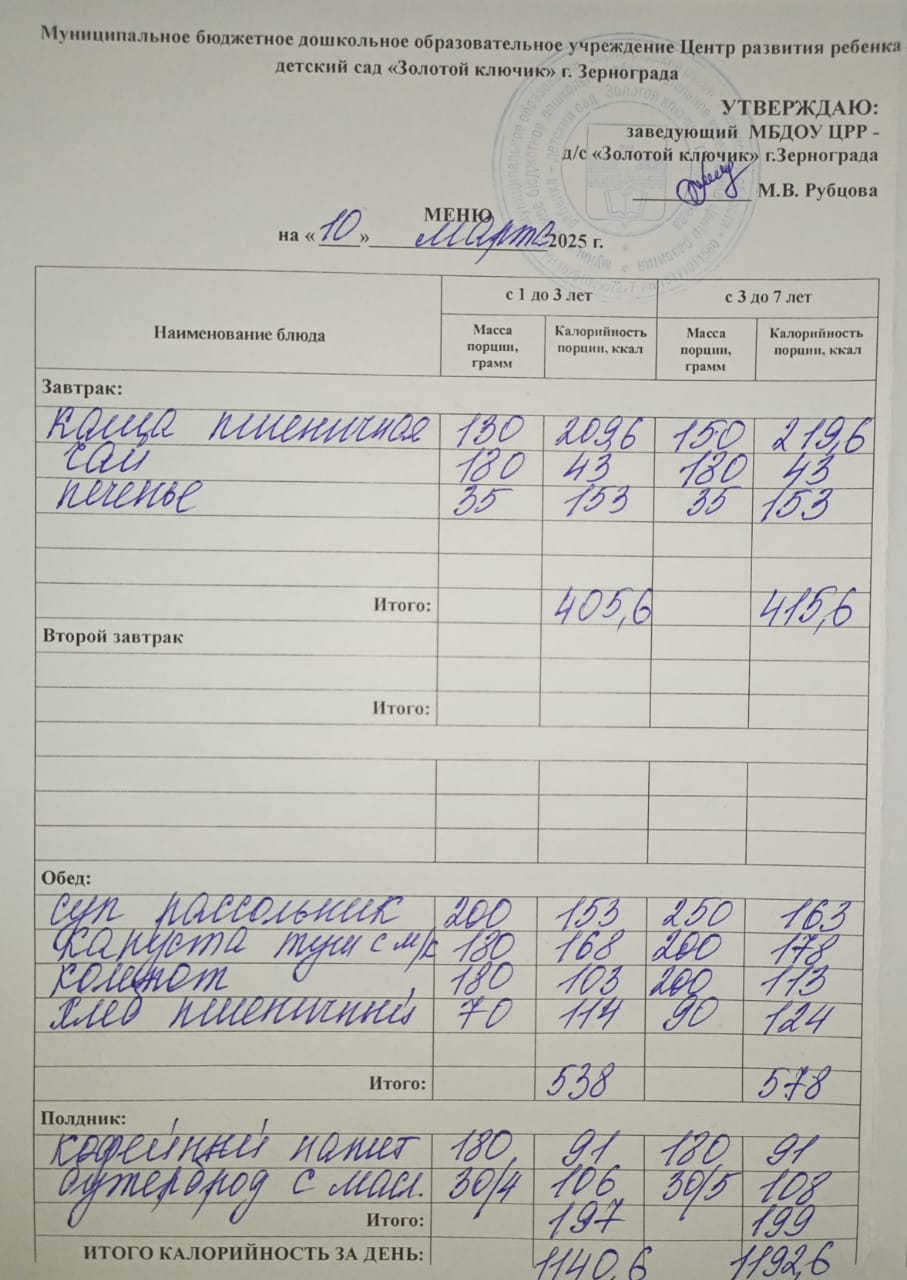 Муниципальное бюджетное дошкольное образовательное учреждение Центр развития ребенка
детский сад «Золотой ключик» г. Зернограда
УТВЕРЖДАЮ:
заведующий МБДОУ ЦРР -
д/с «Золотой ключик» г.Зернограда
М.В. Рубцова
МЕНЮ
на «10» марта 2025 г.
Наименование блюда с 1 до 3 лет с 3 до 7 лет
Масса порции, грамм Калорийность порции, ккал Масса порции, грамм Калорийность порции, ккал
Завтрак:
каша пшеничная 130 209,6 150 219,6
чай 180 43 180 43
печенье 35 153 35 153
Итого: 405,6 415,6
Второй завтрак
Итого:
Обед:
суп рассольник 200 153 250 163
капуста туш с м/к 180 168 200 178
компот 180 103 200 113
хлеб пшеничный 70 114 90 124
Итого: 538 578
Полдник:
кофейный напит 180 91 180 91
бутерброд с масл. 30/4 106 30/5 108
Итого: 197 199
ИТОГО КАЛОРИЙНОСТЬ ЗА ДЕНЬ: 1140,6 1192,6